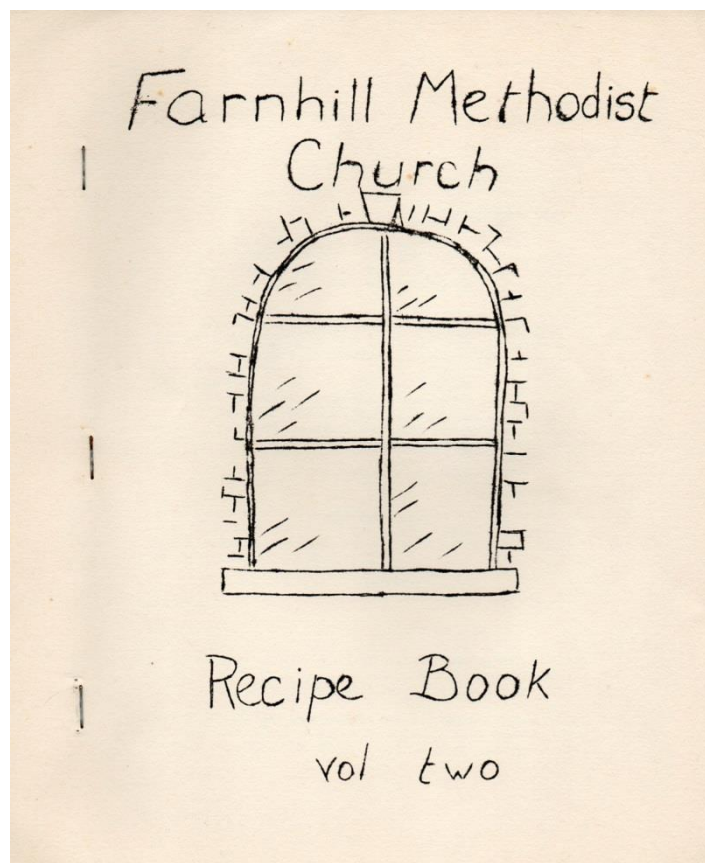 Farnhill Methodist
Church
Recipe Book
vol two